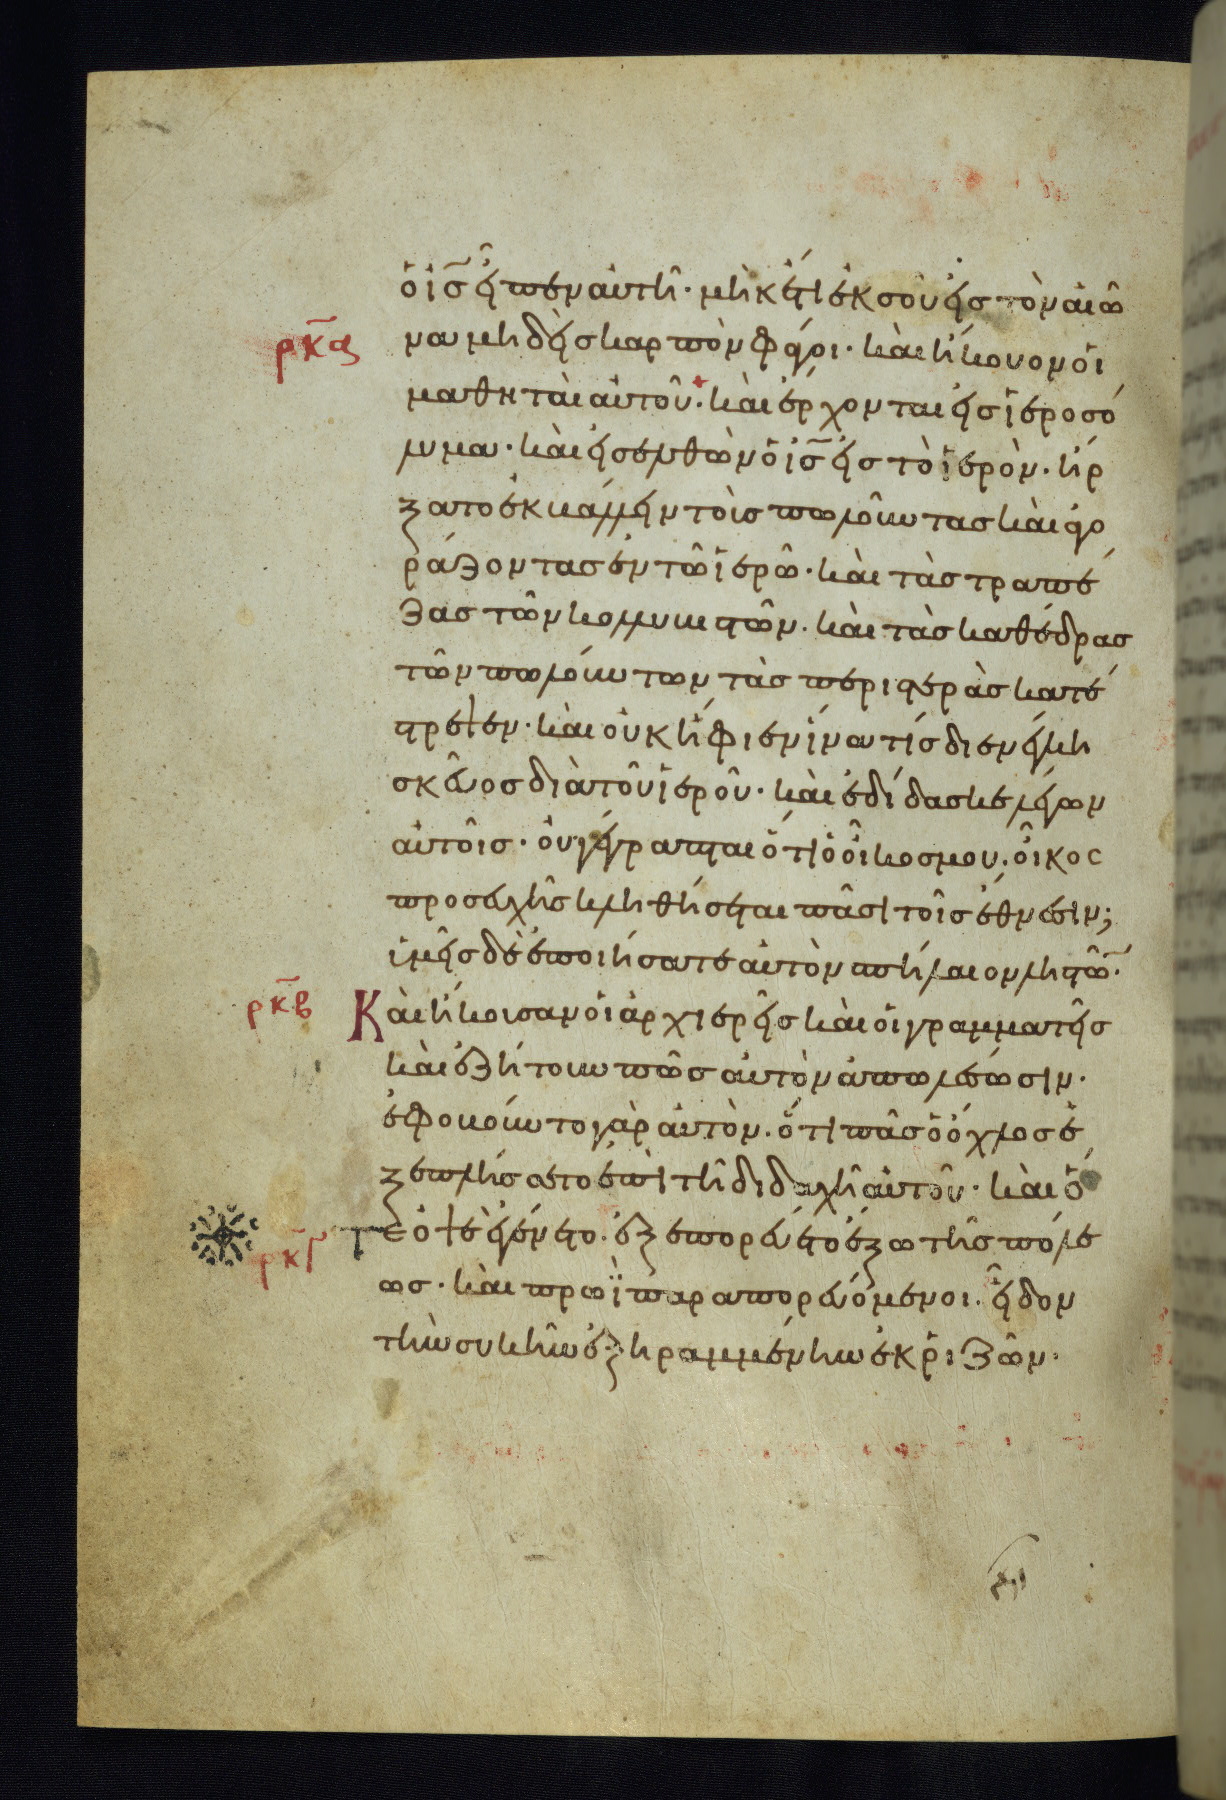 ὁ ἰς̄ εἶπεν αὐτῆ· μὴκέτι ἐκ σοῦ εἰς τὸν αἰῶ
ρκα να μηδεὶς καρπὸν φάγοι· καὶ ἤκουον οἱ
μαθηταὶ αὐτοῦ· καὶ ἔρχονται εἰς ἱεροσό
λυμα· καὶ εἰσελθὼν ὁ ἰς̄ εἰς τὸ ἱερὸν· ἤρ
ξατο ἐκβάλλειν τοὺς πωλοῦντας καὶ ἀγο
ράζοντας ἐν τῶ ἱερῶ· καὶ τὰς τραπέ
ζας τῶν κολλυβιστῶν· καὶ τὰς καθέδρας
τῶν πωλούντων τὰς περιστερὰς κατέ
στρεψεν· καὶ οὐκ ἤφιεν ἵνα τίς διενέγκη
σκεῦος διὰ τοῦ ἱεροῦ· καὶ ἐδίδασκε λέγων
αὐτοῖς· οὐ γέγραπται ὅτι ὁ οἶκος μου· οἶκος
προσευχῆς κληθήσεται πᾶσι τοῖς ἔθνεσιν;
ὑμεῖς δὲ ἐποιήσατε αὐτὸν σπήλαιον ληστῶ̄·
ρκβ Καὶ ἤκουσαν οἱ ἀρχιερεῖς καὶ οἱ γραμματεῖς
καὶ ἐζήτουν πῶς αὐτὸν ἀπωλέσωσιν·
ἐφοβοῦντο γὰρ αὐτὸν· ὅτι πᾶς ὁ ὄχλος ἐ
ξεπλήσσετο ἐπὶ τῆ διδαχῆ αὐτοῦ· καὶ ὅ
ρκγ τε ὀψὲ ἐγένετο· ἐξεπορεύετο ἔξω τῆς πόλε
ως· καὶ πρωῒ παραπορευόμενοι· εἶδον
τὴν συκῆν ἐξηραμμένην ἐκ ῥιζῶν·